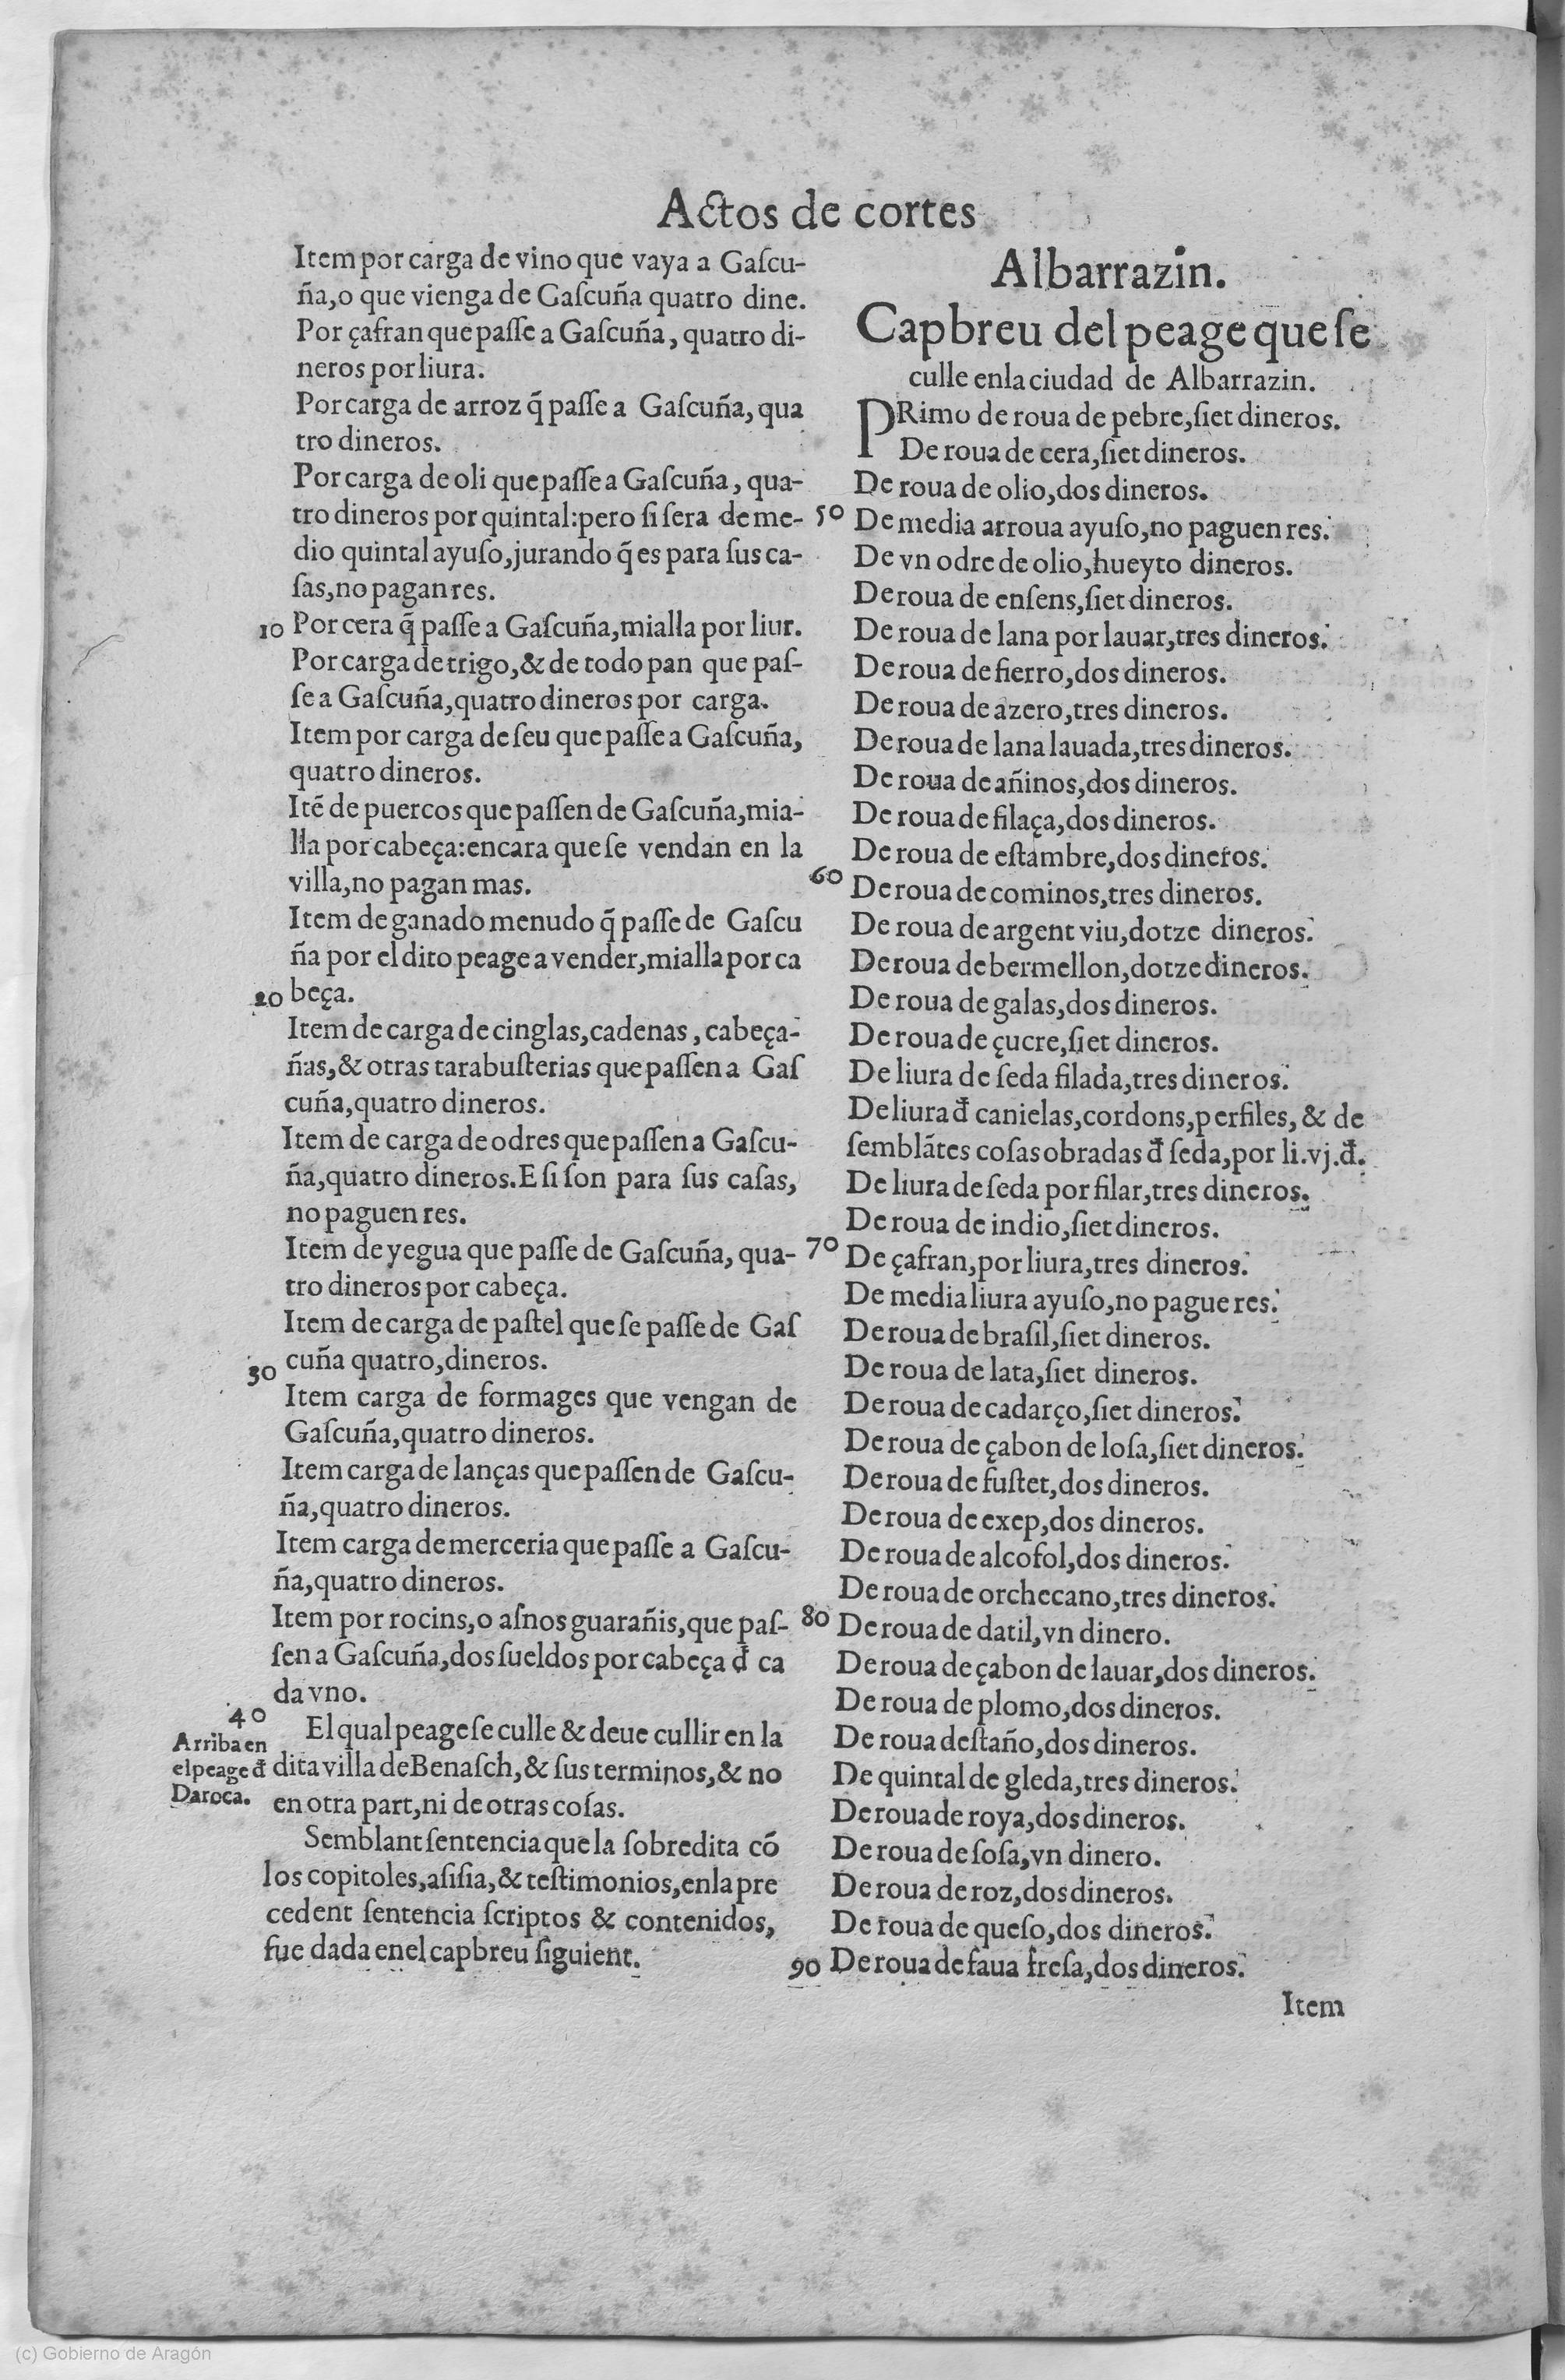 Actos de cortes
Item por carga de vino que vaya a Gaſcu-
ña,o que vienga de Gaſcuña quatro dine.
Por çafran que paſſe a Gaſcuña, quatro di-
neros por liura.
Por carga de arroz q̃ paſſe a Gaſcuña, qua
tro dineros.
Por carga de oli que paſſe a Gaſcuña, qua-
tro dineros por quintal:pero ſi ſera de me-
dio quintal ayuſo,jurando q̃ es para ſus ca-
ſas,no pagan res.
10 Por cera q̃ paſſe a Gaſcuña,mialla por liur.
Por carga de trigo,& de todo pan que paſ-
ſe a Gaſcuña,quatro dineros por carga.
Item por carga de ſeu que paſſe a Gaſcuña,
quatro dineros.
Itẽ de puercos que paſſen de Gaſcuña,mia-
lla por cabeça:encara que ſe vendan en la
villa,no pagan mas.
Item de ganado menudo q̃ paſſe de Gaſcu
ña por el dito peage a vender,mialla por ca
20 beça.
Item de carga de cinglas,cadenas, cabeça-
ñas,& otras tarabuſterias que paſſen a Gaſ
cuña,quatro dineros.
Item de carga de odres que paſſen a Gaſcu-
ña,quatro dineros.E ſi ſon para ſus caſas,
no paguen res.
Item de yegua que paſſe de Gaſcuña, qua-
tro dineros por cabeça.
Item de carga de paſtel que ſe paſſe de Gaſ
30 cuña quatro,dineros.
Item carga de formages que vengan de
Gaſcuña,quatro dineros.
Item carga de lanças que paſſen de Gaſcu-
ña,quatro dineros.
Item carga de merceria que paſſe a Gaſcu-
ña,quatro dineros.
Item por rocins,o aſnos guarañis,que paſ-
ſen a Gaſcuña,dos ſueldos por cabeça đ ca
da vno.
40 El qual peage ſe culle & deue cullir en la
dita villa de Benaſch,& ſus terminos,& no
en otra part,ni de otras coſas.
Arriba en
el peage đ
Daroca.
Semblant ſentencia que la ſobredita cõ
los copitoles,aſiſia,& teſtimonios,en la pre
cedent ſentencia ſcriptos & contenidos,
fue dada en el capbreu ſiguient.
Albarrazin.
Capbreu del peage que ſe
culle en la ciudad de Albarrazin.
PRimo de roua de pebre,ſiet dineros.
De roua de cera,ſiet dineros.
De roua de olio,dos dineros.
50 De media arroua ayuſo,no paguen res.
De vn odre de olio,hueyto dineros.
De roua de enſens,ſiet dineros.
De roua de lana por lauar,tres dineros.
De roua de fierro,dos dineros.
De roua de azero,tres dineros.
De roua de lana lauada,tres dineros.
De roua de añinos,dos dineros.
De roua de filaça,dos dineros.
De roua de eſtambre,dos dineros.
60 De roua de cominos,tres dineros.
De roua de argent viu,dotze dineros.
De roua de bermellon,dotze dineros.
De roua de galas,dos dineros.
De roua de çucre,ſiet dineros.
De liura de ſeda filada,tres dineros.
De liura đ canielas,cordons,perfiles, & de
ſemblãtes coſas obradas đ ſeda,por li.vj.đ.
De liura de ſeda por filar,tres dineros.
De roua de indio,ſiet dineros.
70 De çafran,por liura,tres dineros.
De media liura ayuſo,no pague res.
De roua de braſil,ſiet dineros.
De roua de lata,ſiet dineros.
De roua de cadarço,ſiet dineros.
De roua de çabon de loſa,ſiet dineros.
De roua de fuſtet,dos dineros.
De roua de exep,dos dineros.
De roua de alcofol,dos dineros.
De roua de orchecano,tres dineros.
80 De roua de datil,vn dinero.
De roua de çabon de lauar,dos dineros.
De roua de plomo,dos dineros.
De roua deſtaño,dos dineros.
De quintal de gleda,tres dineros.
De roua de roya,dos dineros.
De roua de ſoſa,vn dinero.
De roua de roz,dos dineros.
De roua de queſo,dos dineros.
90 De roua de faua freſa,dos dineros.
Item
(c) Gobierno de Aragón